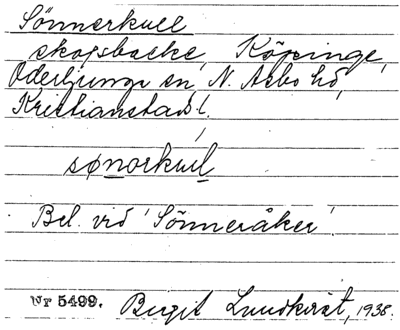 Sönnerkull
skogsbacke, Köpinge,
Oderljunga sn, N. Åsbo hd,
Kristianstads l.
sønorkul
Bel. vid 'Sönneråker'.
Nr 5499. Birgit Lundkvist, 1938.